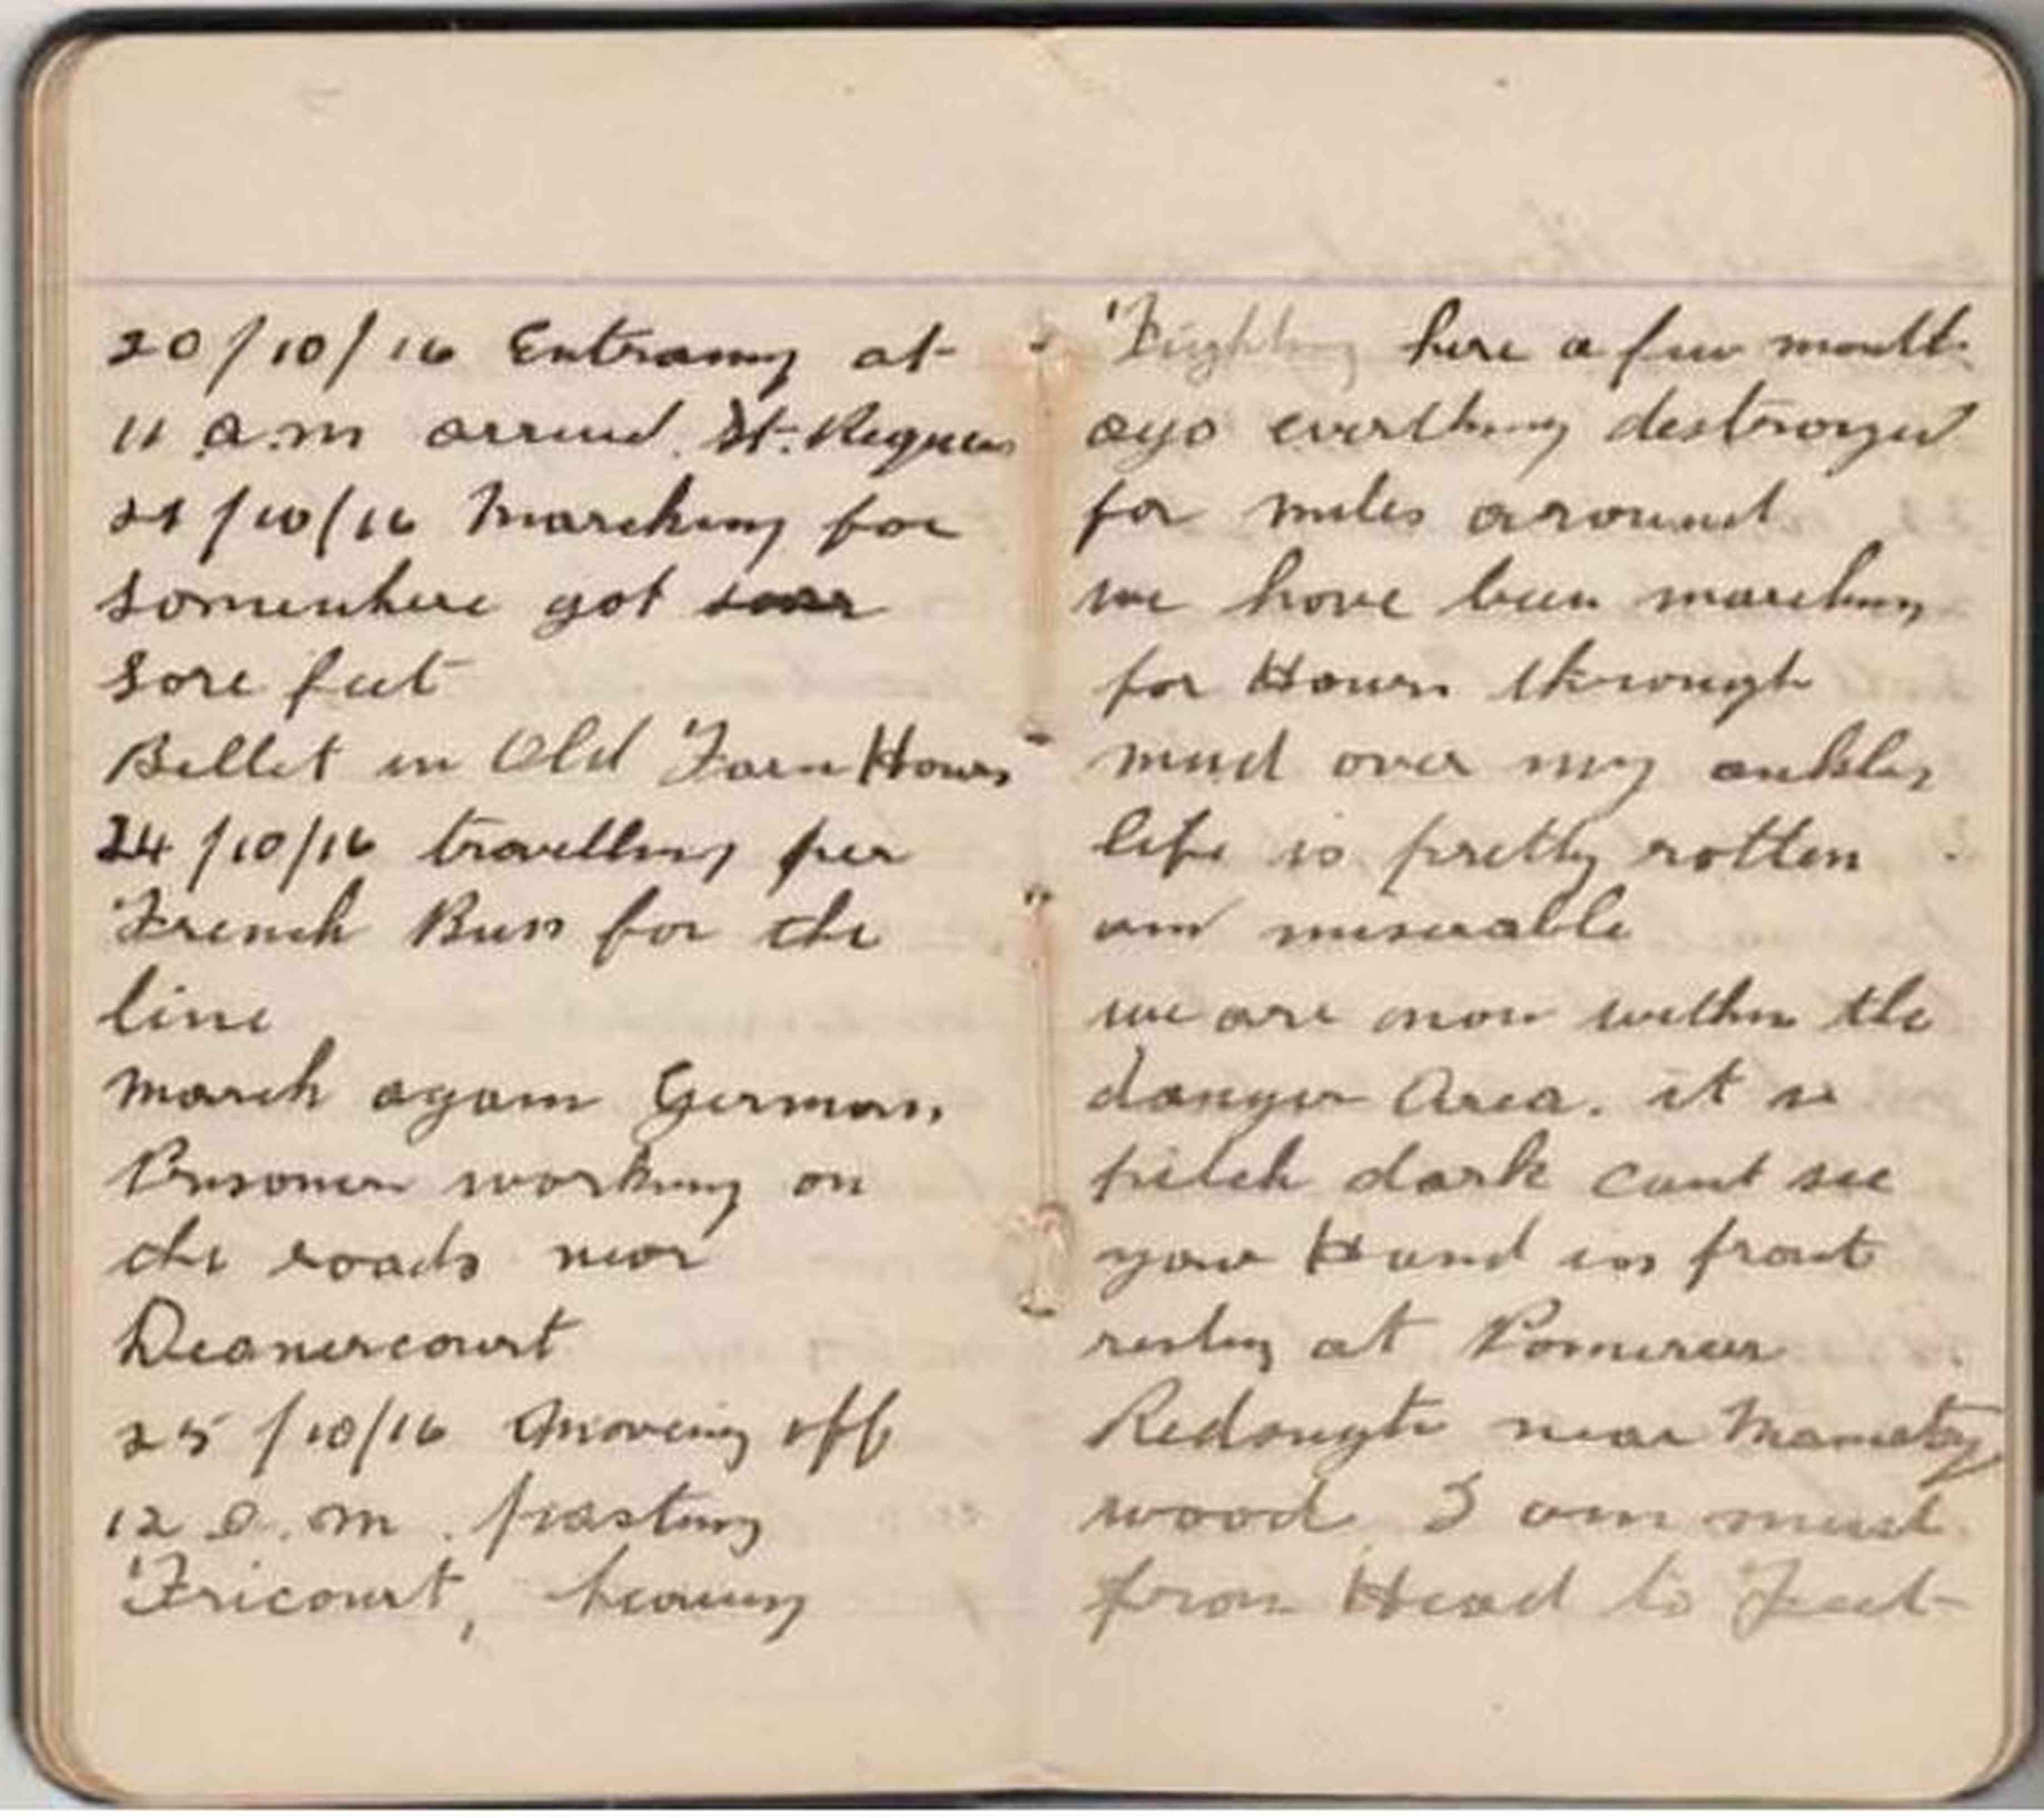 20/10/16 Entraning at
11 a.m arrived St. Requier
21/10/16 Marching for
somewhere got
sore feet
Billet in Old Farm Hous
24/10/16 travelling per
French Buss for the
line
March again German
Prisoner working on
the roads near
Deanercourt
25/10/16 Moveing off
12 a.m. passing
Fricourt, heavy
Fighting here a few month
ago everthing destroyed
for miles around
we have been marching
for Hours through
mud over my ankles
life is pretty rotten
and miserable
we are now within the
danger Area. it is
pitch dark cant see
your Hand in front
resting at Pomerer
Redought near Mametz
wood I am mud
from Head to Feet